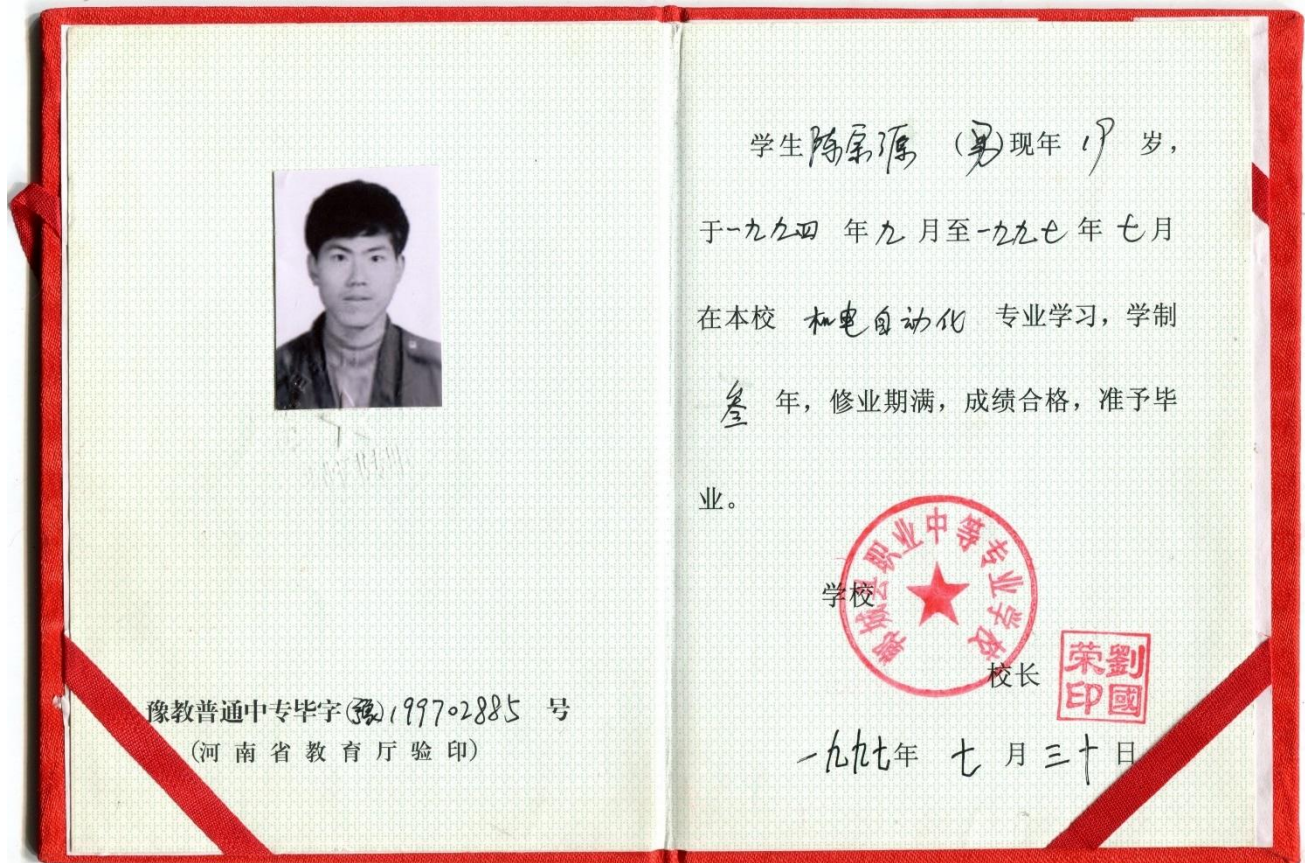 豫教普通中专毕字()199702885 号
(河南省教育厅验印)
学生陈宗源 (男)现年 19 岁,
于一九九四 年九 月至一九九七年 七月
在本校 机电自动化 专业学习,学制
叁 年,修业期满,成绩合格,准予毕
业。
郸城县职业中等专业学校
学校
校长
劉國荣印
一九九七年 七 月三十日